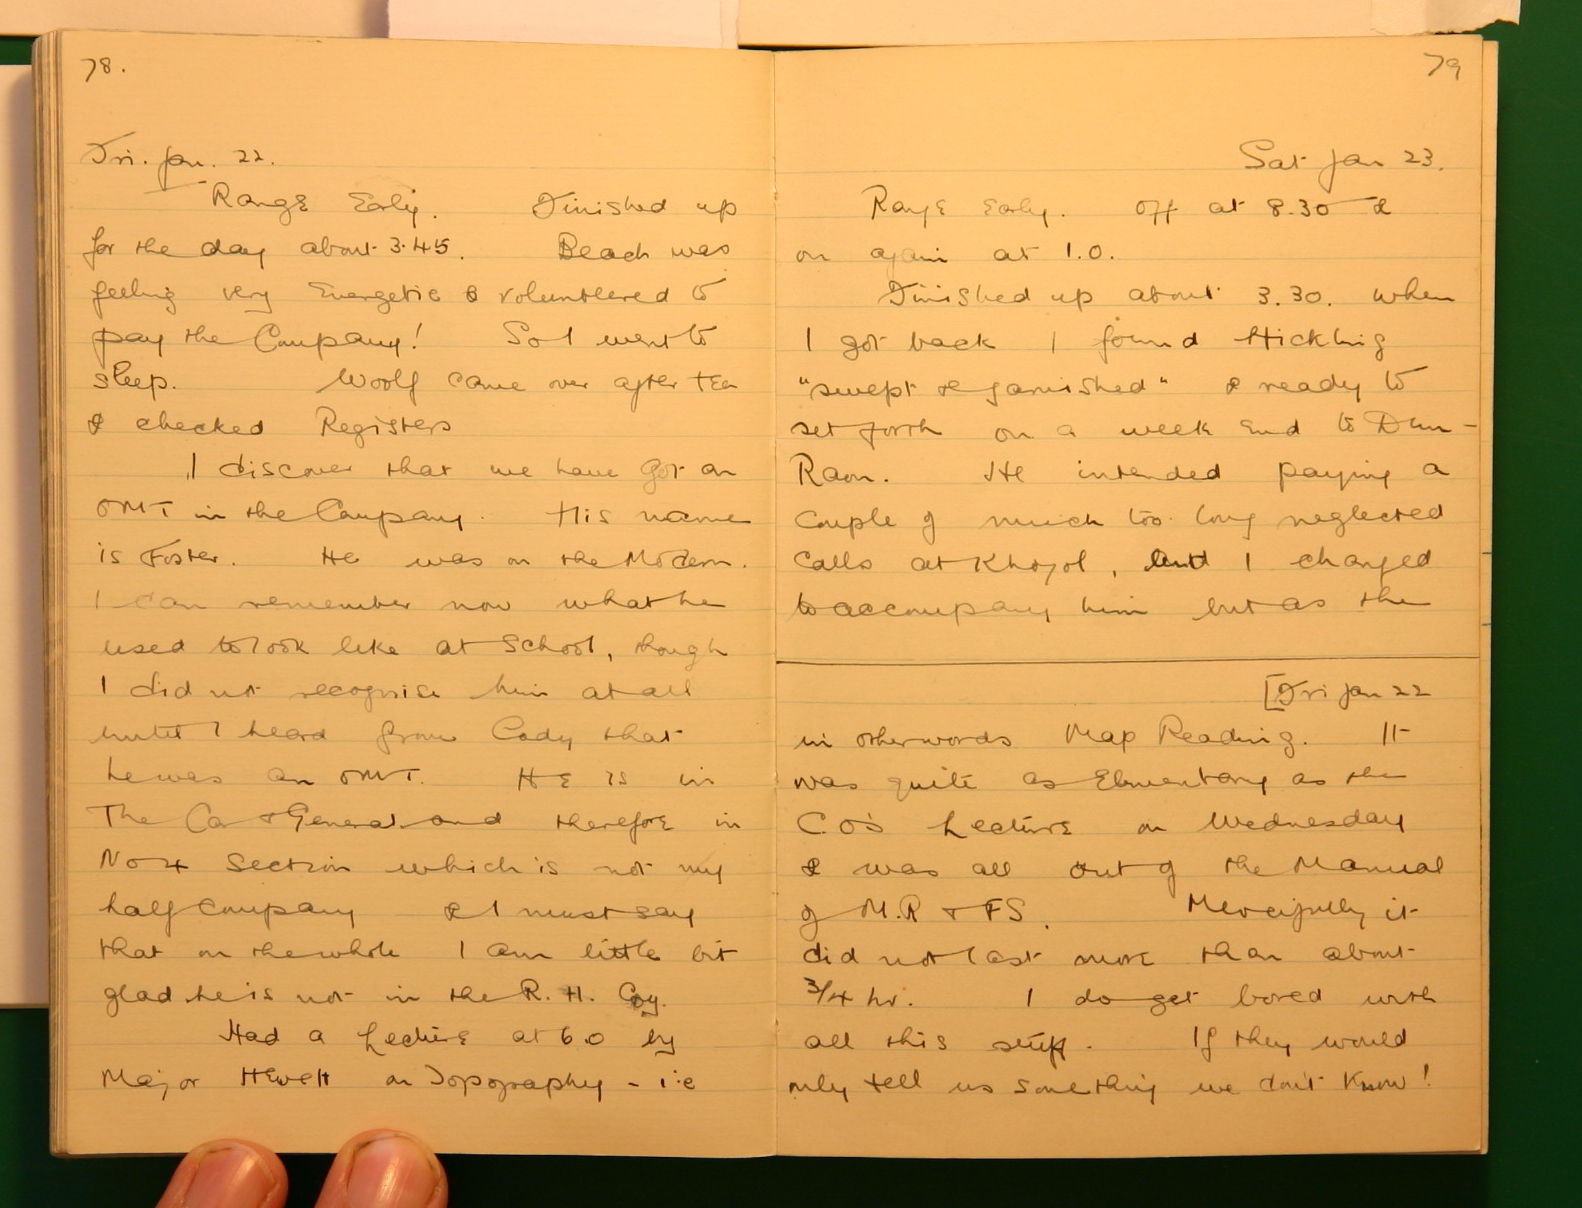 78.
Fri. Jan. 22.
Range Early. Finished up
for the day about 3.45. Beach was
feeling very Energetic & volunteered to
pay the Company! So I went to
sleep. Woolf came over after tea
& checked Registers
I discover that we have got an
OMT in the Company. His name
is Foster. He was on the Modern.
I can remember now what he
used to look like at School, though
I did not recognise him at all
until I heard from Cody that
he was an OMT. He is in
The Car & General and therefore in
No 4 Section which is not my
half company & I must say
that on the whole I am little bit
glad he is not in the R. H. Coy.
Had a Lecture at 6.0 by
Major Hewett on Topography - i.e
79
Sat Jan 23.
Range Early. Off at 8.30 &
on again at 1.0.
Finished up about 3.30. When
I got back I found Hickling
"swept & garnished" & ready to
set forth on a week end to Dum-
Raon. He intended paying a
couple of much too long neglected
calls at Khojol, and I changed
to accompany him but as the
[Fri Jan 22
in otherwords Map Reading. It
was quite as Elementary as the
C.O's Lecture on Wednesday
& was all out of the Manual
of M.R & FS. Mercifully it
did not last more than about
3/4 hr. I do get bored with
all this stuff. If they would
only tell us something we don't know!